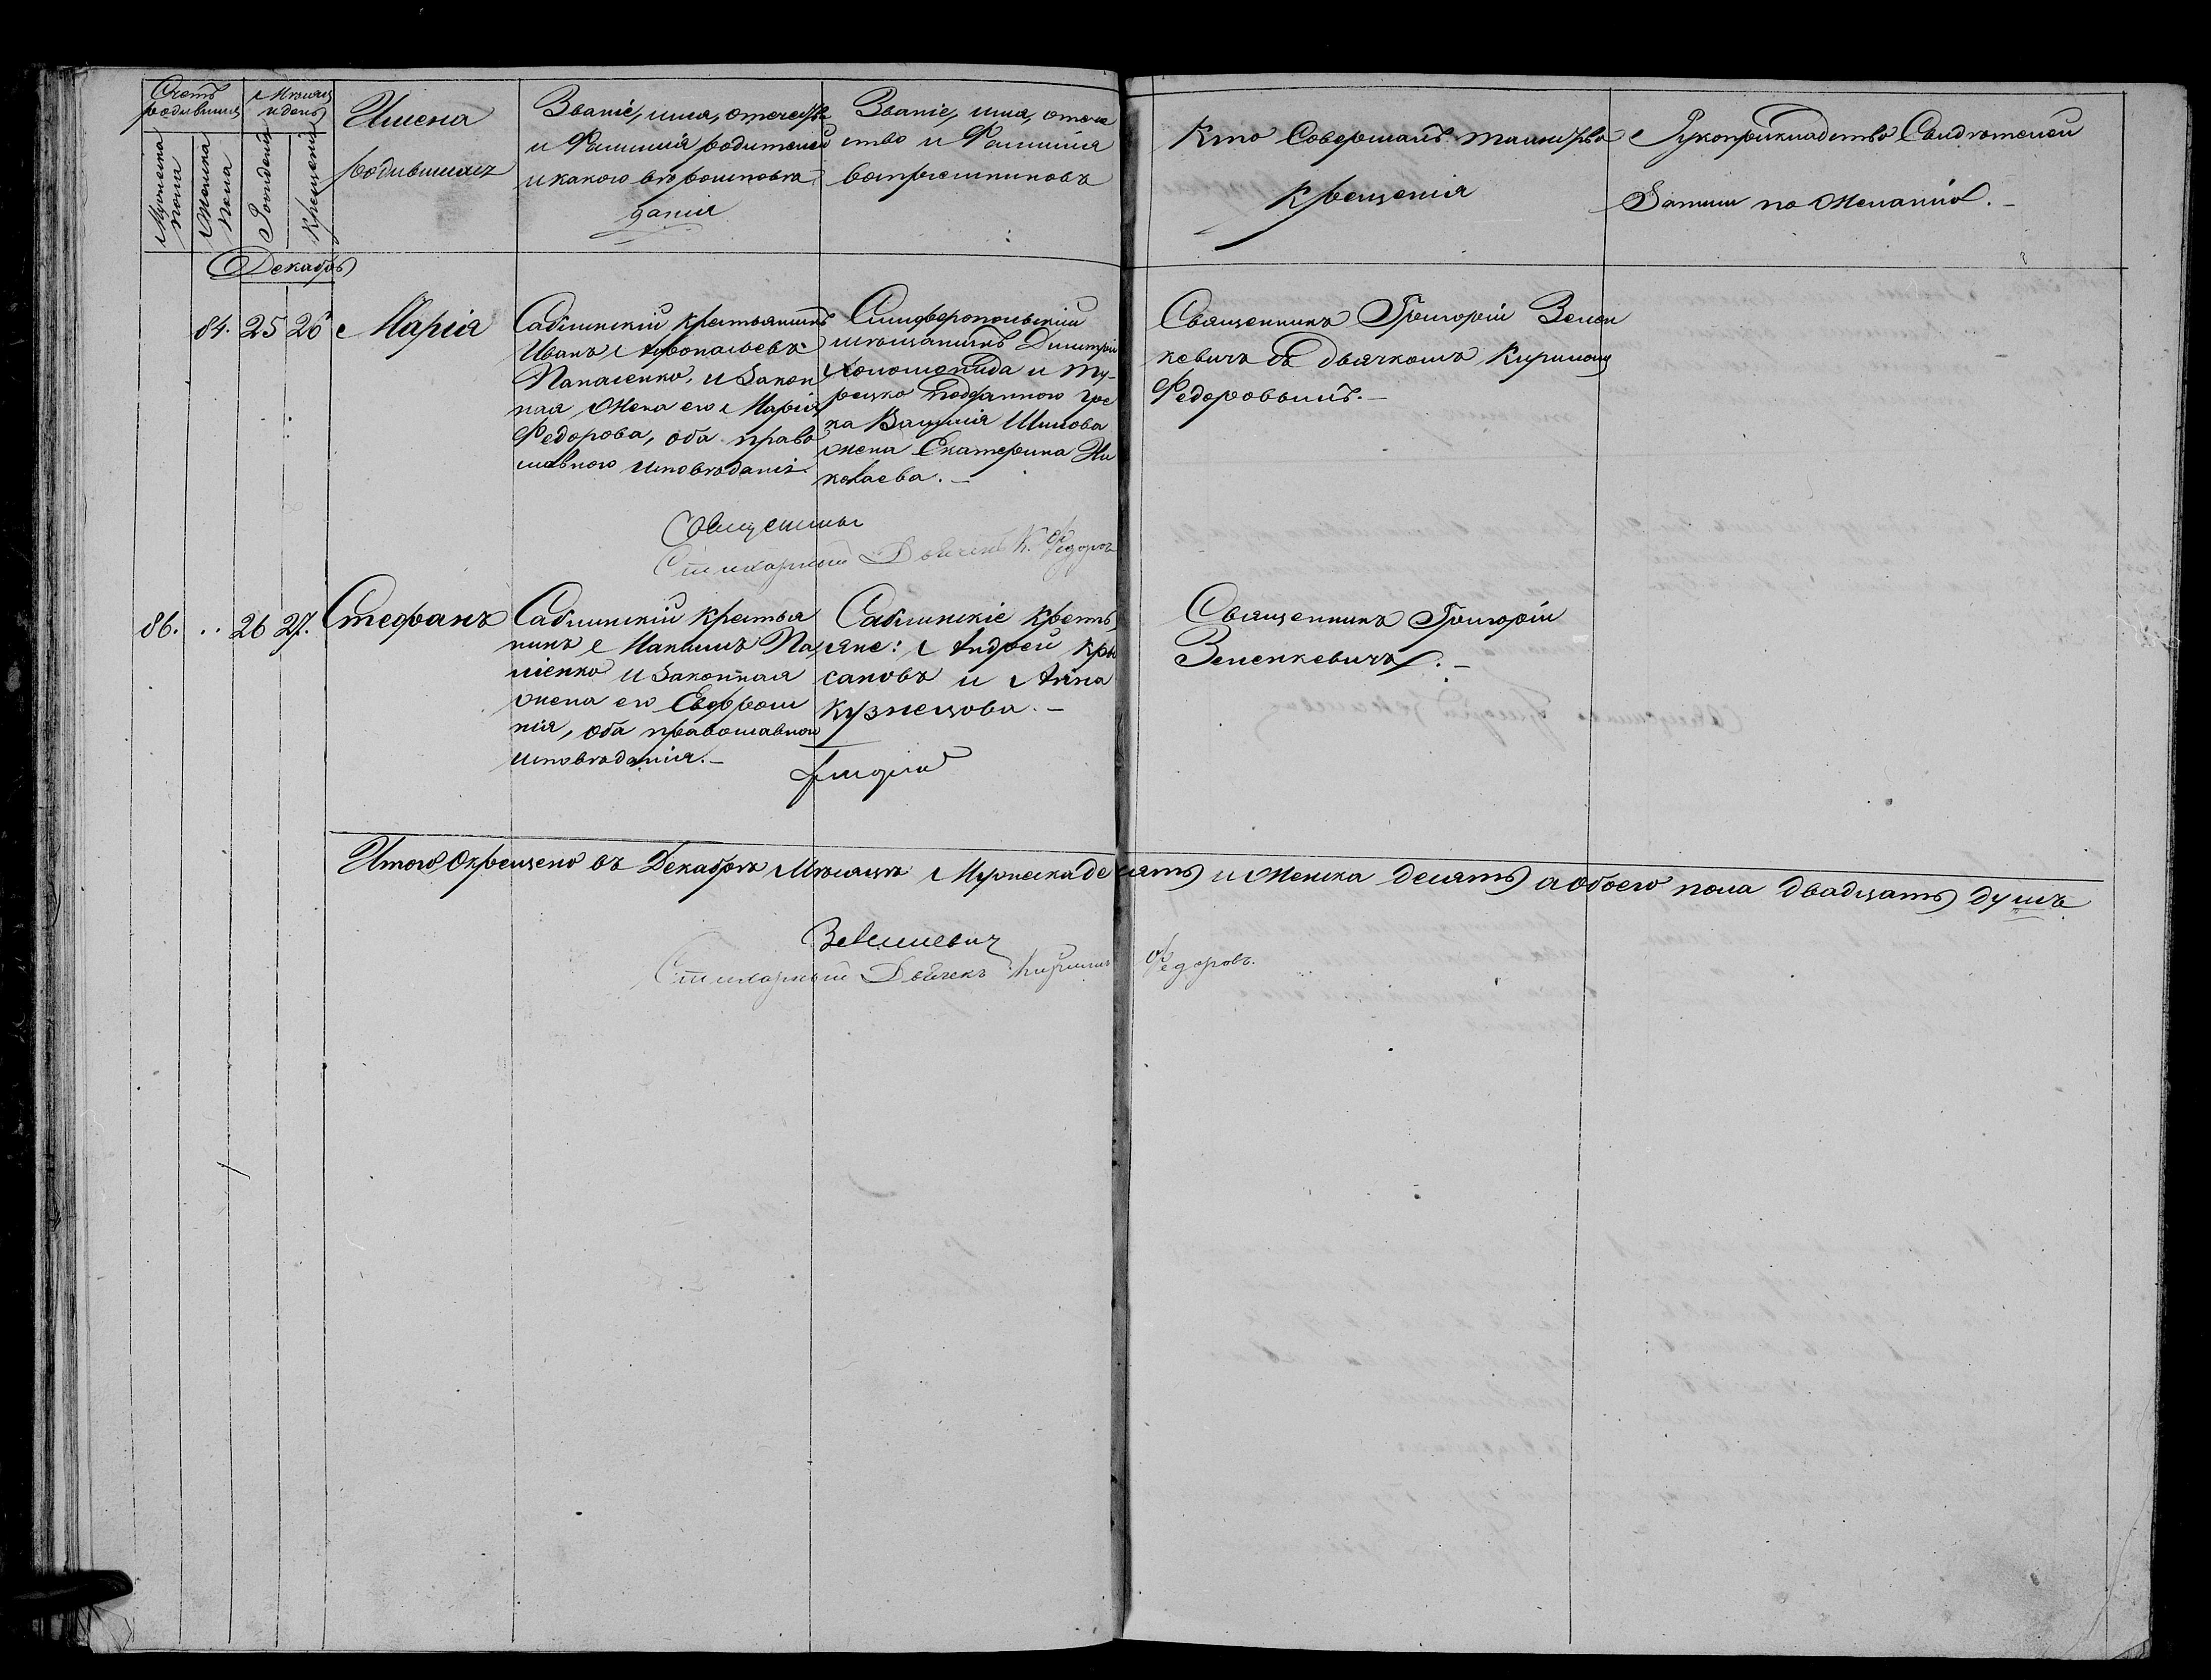 Счетъ
родившихся
Мѣсяцъ
и день
Мужеска
пола
Женска
пола
Рожденія
Крещенія
Имена
родившихся
Званіе, имя, отечество
и Фамилія родителей
и какого вѣроисповѣ
данія
Званіе, имя, отече
ство и Фамилія
воспріемниковъ
Кто Совершалъ таинство
Крещенія
Рукоприкладство Свидѣтелей
Записи по желанію.
Декабрь
84. 25 26
Марія
Саблинскій крестьянинъ
Иванъ Афонасьевъ
Папаченко, и закон
ная жена его Марія
Федорова, оба право
славного исповѣданія
Симферопольскій
мѣщанинъ Димитрій
и ту-
рецко подданного гре
ка Василія Шилова
жена Екатерина Ни
колаева.
Священникъ Григорій Зелен
кевичъ съ дьячкомъ Кирилломъ
Федоровымъ.
Священникъ
Стихарный Дьячекъ К. Федоровъ
86. .. 26 27.
Стефанъ
Саблинскій крестья
нинъ Максимъ Па
ліенко и законная
жена его Евфроси
нія, оба православного
исповѣданія.
Саблинскіе кресть
яне: Андрей Кры
сановъ и Анна
Кузнецова.
Священникъ Григорій
Зеленкевичъ.
Григорій
Итого окрещено въ Декабрѣ Мѣсяцѣ Мужеска десять и Женска десять а обоего пола двадцать душъ
Зеленкевич
Стихарный Дьячекъ Кириллъ Федоровъ.